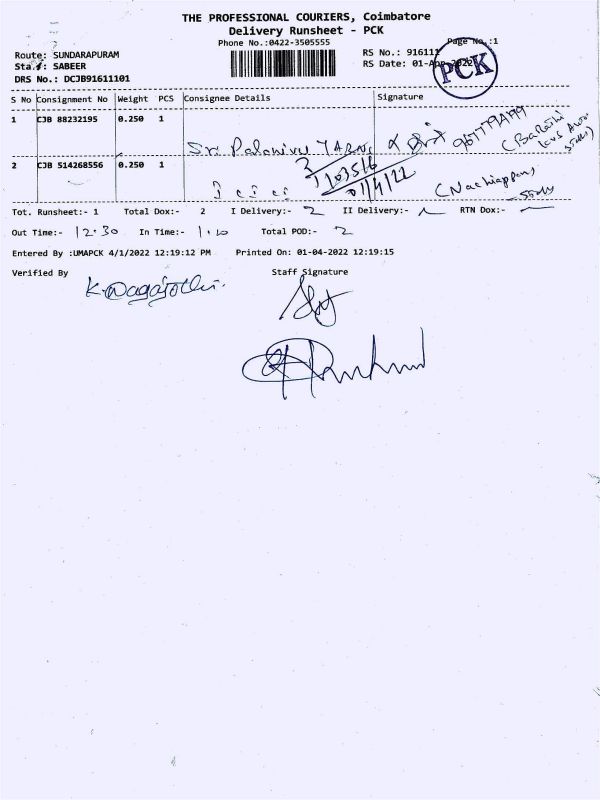 THE PROFESSIONAL COURIERS, Coimbatore
Delivery Runsheet - PCK
Phone No.:0422-3505555
Page No.:1
Route: SUNDARAPURAM
RS No.: 916111
Staff: SABEER
RS Date: 01-Apr-2022
PCK
DRS No.: DCJB91611101
S No Consignment No Weight PCS Consignee Details Signature
1 CJB 88232195 0.250 1
Sri Palanivel
2 CJB 514268556 0.250 1
I c i c i
(Nachiappan)
Tot. Runsheet:- 1 Total Dox:- 2 I Delivery:- 2 II Delivery:- RTN Dox:-
Out Time:- 12.30 In Time:- 1.10 Total POD:- 2
Entered By :UMAPCK 4/1/2022 12:19:12 PM Printed On: 01-04-2022 12:19:15
Verified By Staff Signature